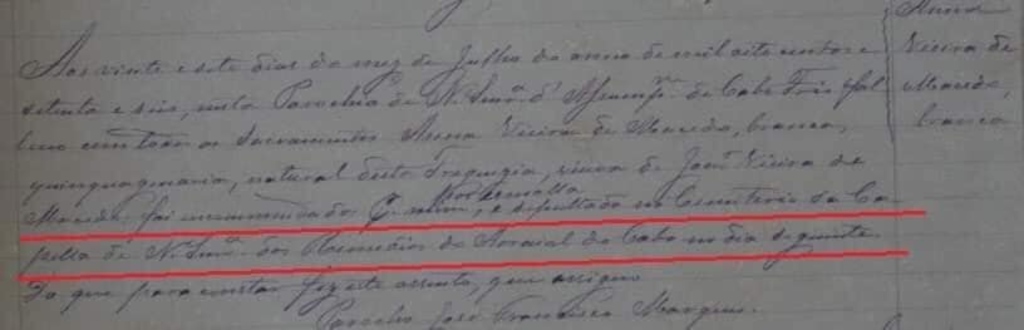 Aos vinte e sete dias do mez de Julho do anno de mil oito centos e
setenta e seis, nesta Parochia de N. Snrª. d'Assumpªm. de Cabo Frio fal
leceo com todos os Sacramentos Anna Vieira de Macedo, branca,
quinquagenaria, natural desta Freguezia, viuva de Joaqm Vieira de
Macedo: foi encommendada por mim, e sepultada no Cemiterio da Ca
pella de N. Snrª. dos Remedios do Arraial do Cabo no dia seguinte.
Do que para constar fiz este assento, que assigno.
Parocho José Francisco Marques.
Anna
Vieira de
Macedo,
branca